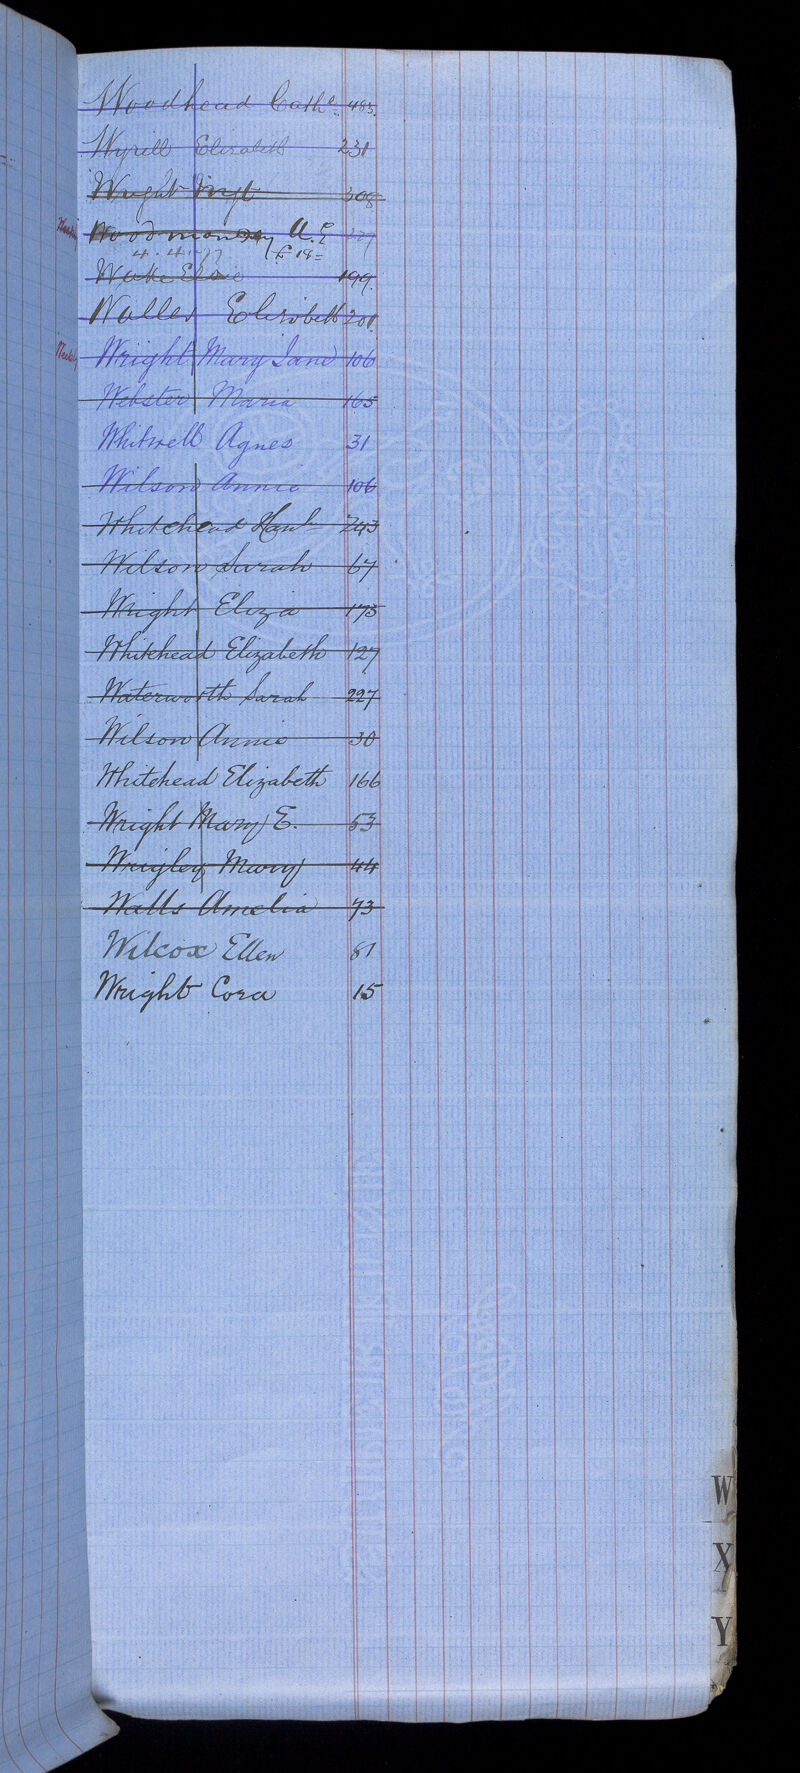 Woodhead Cathe. 483.
Wyrill Elizabeth 231
Wright 308
Woodmansey A. E 
4. 4. 
Wake Elsie 199.
Walles Elizabeth 201
Wright Mary Jane 106
Webster Maria 165
Whitwell Agnes 31
Wilson Annie 106
Whitehead Hanh 243
Wilson Sarah 67
Wright Eliza 175
Whitehead Elizabeth 127
Waterworth Sarah 227
Wilson Annie 30
Whitehead Elizabeth 166
Wright Mary E. 53
Wrigley Mary 44
Walls Amelia 73
Wilcox Ellen 81
Wright Cora 15
W
X
Y